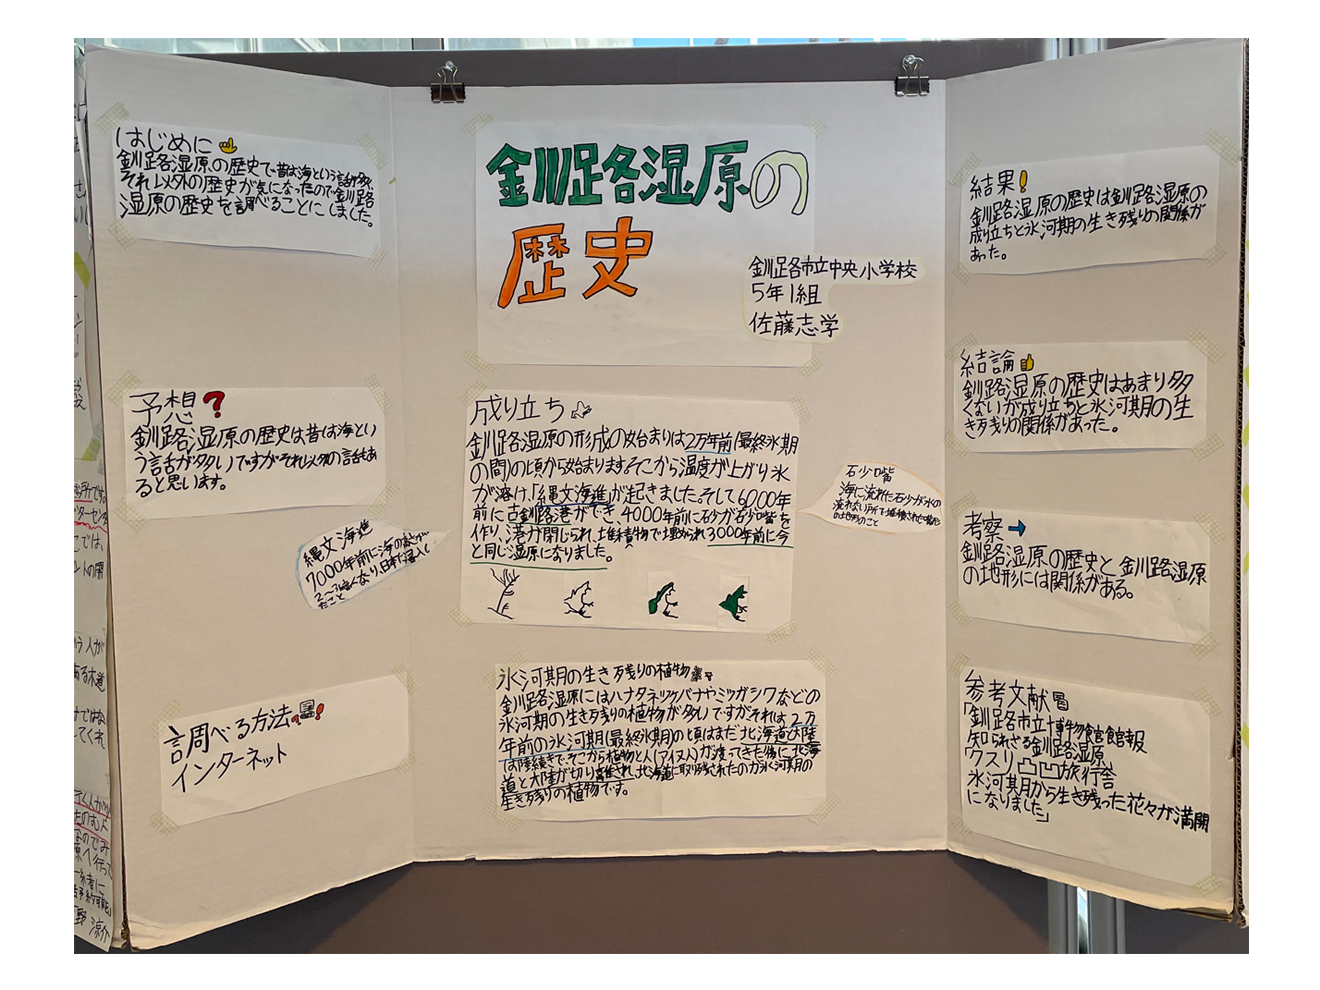 はじめに
釧路湿原の歴史で昔は海という話が多く、
それ以外の歴史が気になったので釧路
湿原の歴史を調べることにしました。
予想?
釧路湿原の歴史は昔は海とい
う話が多いですがそれ以外の話もあ
ると思います。
縄文海進
7000年前に海の
2〜3
なり、日本
たこと
調べる方法
インターネット
釧路湿原の
歴史
釧路市立中央小学校
5年1組
佐藤志学
成り立ち
釧路湿原の形成の始まりは2万年前(最終氷期
の間)の頃から始まります。そこから温度が上がり氷
が溶け、「縄文海進」が起きました。そして6000年
前に古釧路港ができ、4000年前に石少が石少嘴を
作り、港が閉じられ、堆積物で埋められ3000年前に今
と同じ湿原になりました。
石少嘴
海に流れた石少が水の
流れない所で堆積された
の地形のこと
氷河期の生き残りの植物
釧路湿原にはハナタネツケバナやミツガシワなどの
氷河期の生き残りの植物が多いですがそれは、2万
年前の氷河期(最終氷期)の頃はまだ北海道は大陸
は陸続きで、そこから植物と人(アイヌ人)が渡ってきた後に北海
道と大陸が切り離され、北海道に取り残されたのが氷河期の
生き残りの植物です。
結果!
釧路湿原の歴史は釧路湿原の
成り立ちと氷河期の生き残りの関係が
あった。
結論
釧路湿原の歴史はあまり多
くないが成り立ちと氷河期の生
き残りの関係があった。
考察→
釧路湿原の歴史と釧路湿原
の地形には関係がある。
参考文献
「釧路市立博物館館報
知られざる釧路湿原
クスリ凸凹旅行舎
氷河期から生き残った花々が満開
になりました」